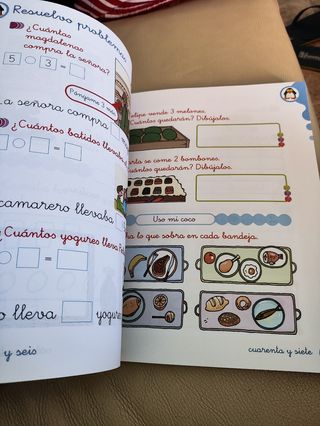 Resuelvo problemas
¿Cuántas
magdalenas
compra la señora?
5 3 =
Póngame 3 más
a señora compra
¿Cuántos batidos llevaba
=
camarero llevaba
¿Cuántos yogures lleva
=
lleva yogures
y seis
elipe vende 3 melones.
Cuántos quedarán? Dibújalos.
arta se come 2 bombones.
Cuántos quedarán? Dibújalos.
Uso mi coco
ha lo que sobra en cada bandeja.
cuarenta y siete